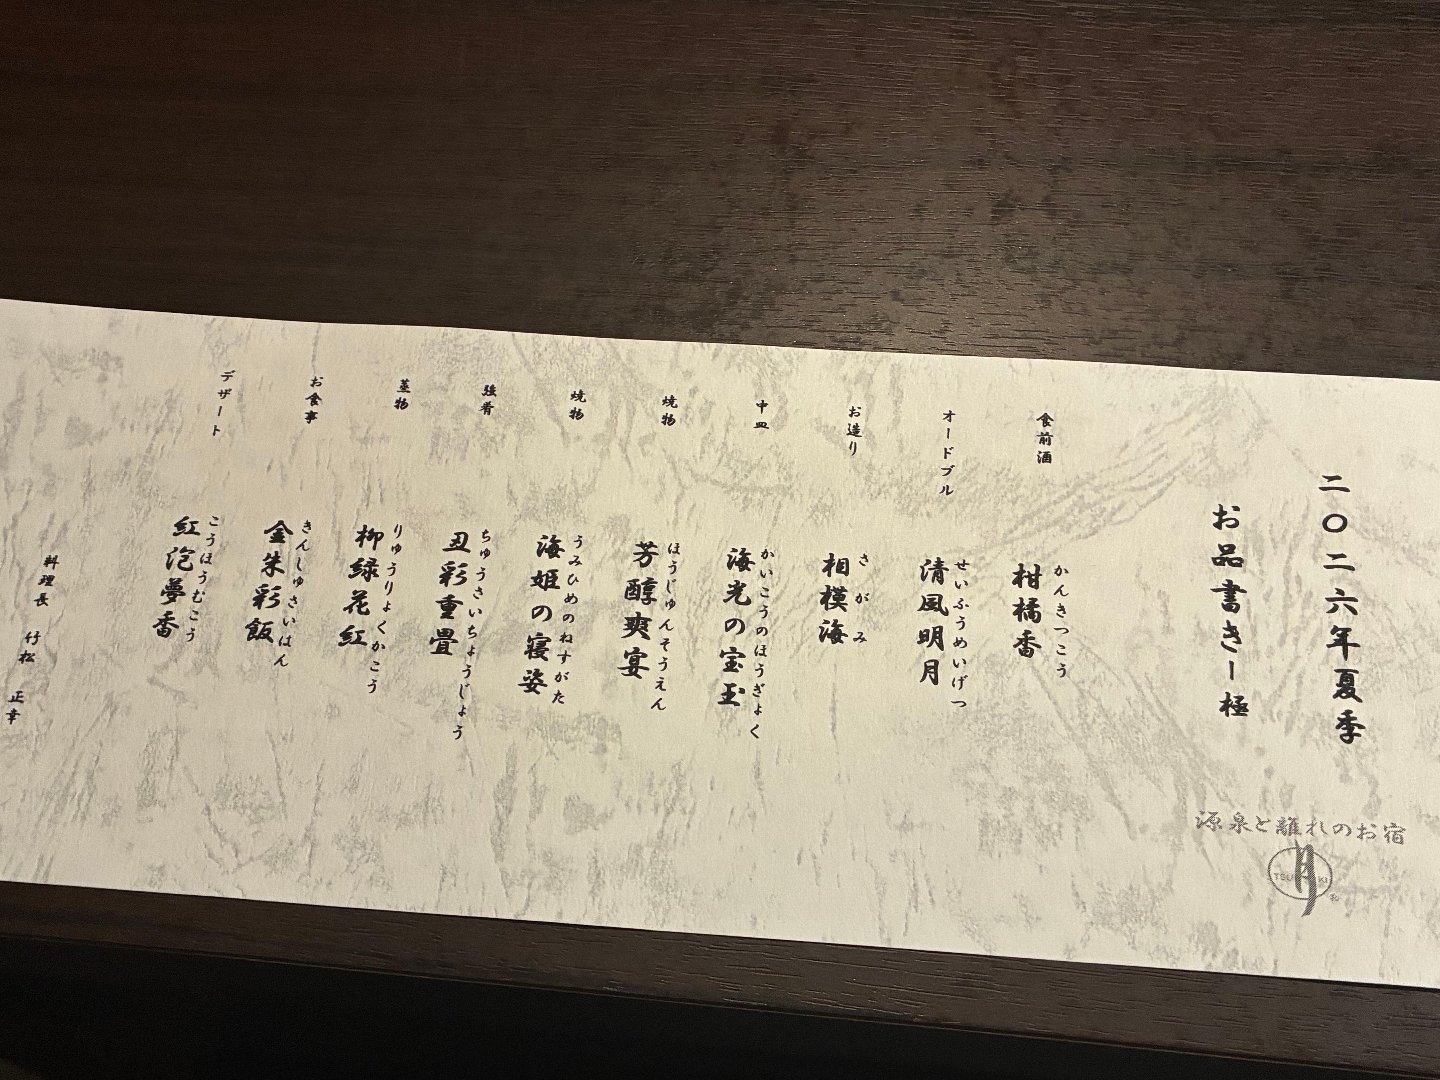 二〇二六年夏季
お品書き－極
源泉と離れのお宿
月
TSUKI
食前酒
かんきつこう
柑橘香
オードブル
せいふうめいげつ
清風明月
お造り
さがみ
相模海
中皿
かいこうのほうぎょく
海光の宝玉
焼物
ほうじゅんそうえん
芳醇爽宴
焼物
うみひめのねすがた
海姫の寝姿
強肴
ちゅうさいちょうじょう
丑彩重畳
蒸物
りゅうりょくかこう
柳緑花紅
お食事
きんしゅさいはん
金朱彩飯
デザート
こうほうむこう
紅泡夢香
料理長 竹松 正幸